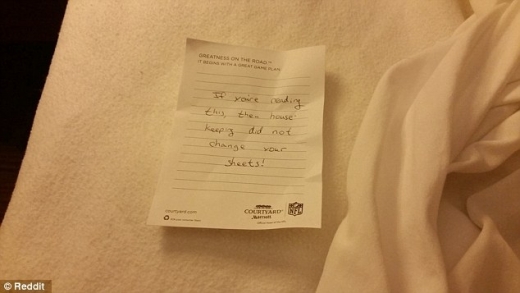 GREATNESS ON THE ROAD.™
IT BEGINS WITH A GREAT GAME PLAN.
If you're reading
this, then house
keeping did not
change your
sheets!
courtyard.com
COURTYARD
Marriott
NFL
© Reddit